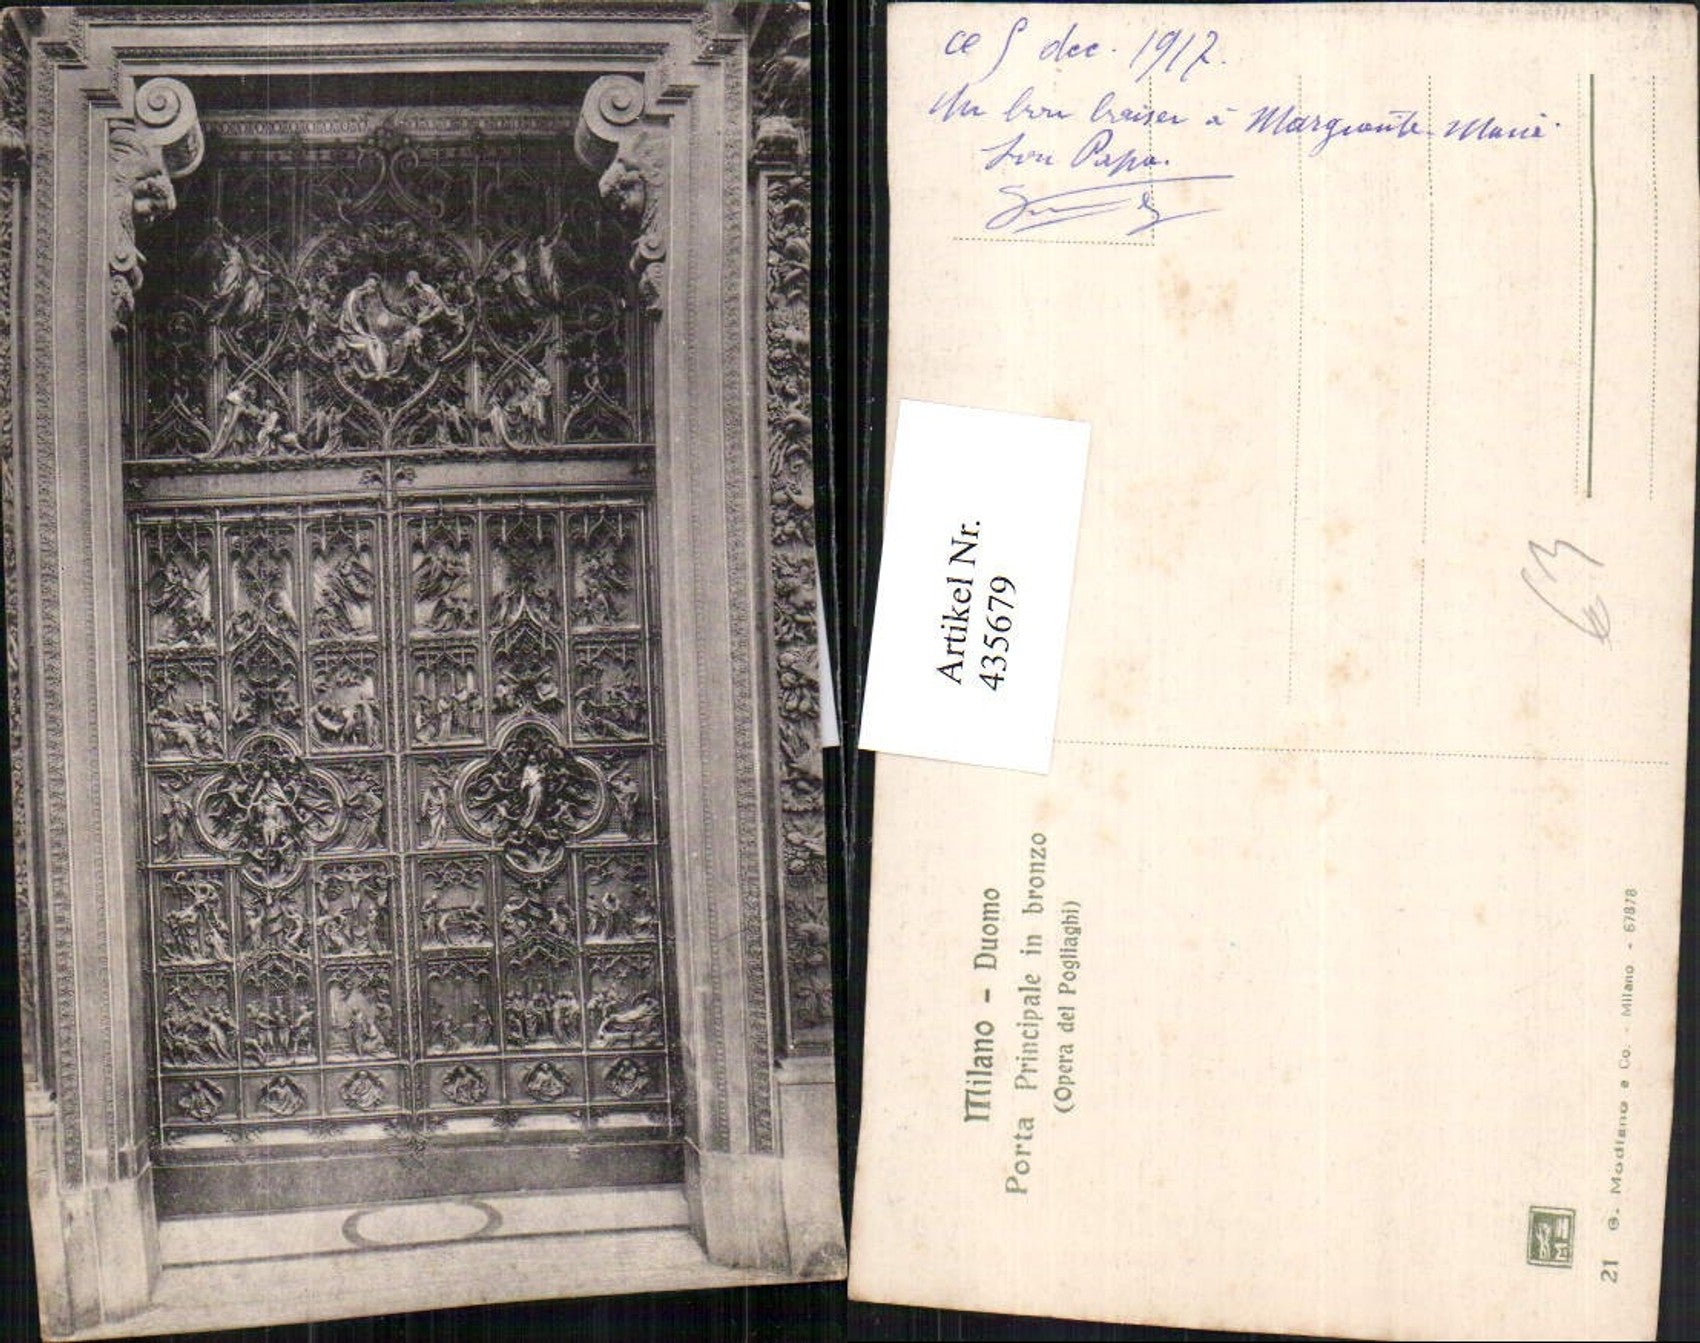 ce 5 dec. 1917.
Un bon baiser à Marguerite-Marie.
Son Papa.
Artikel Nr.
435679
Milano - Duomo
Porta Principale in bronzo
(Opera del Pogliaghi)
21 G. Modiano e Co. - Milano - 67878